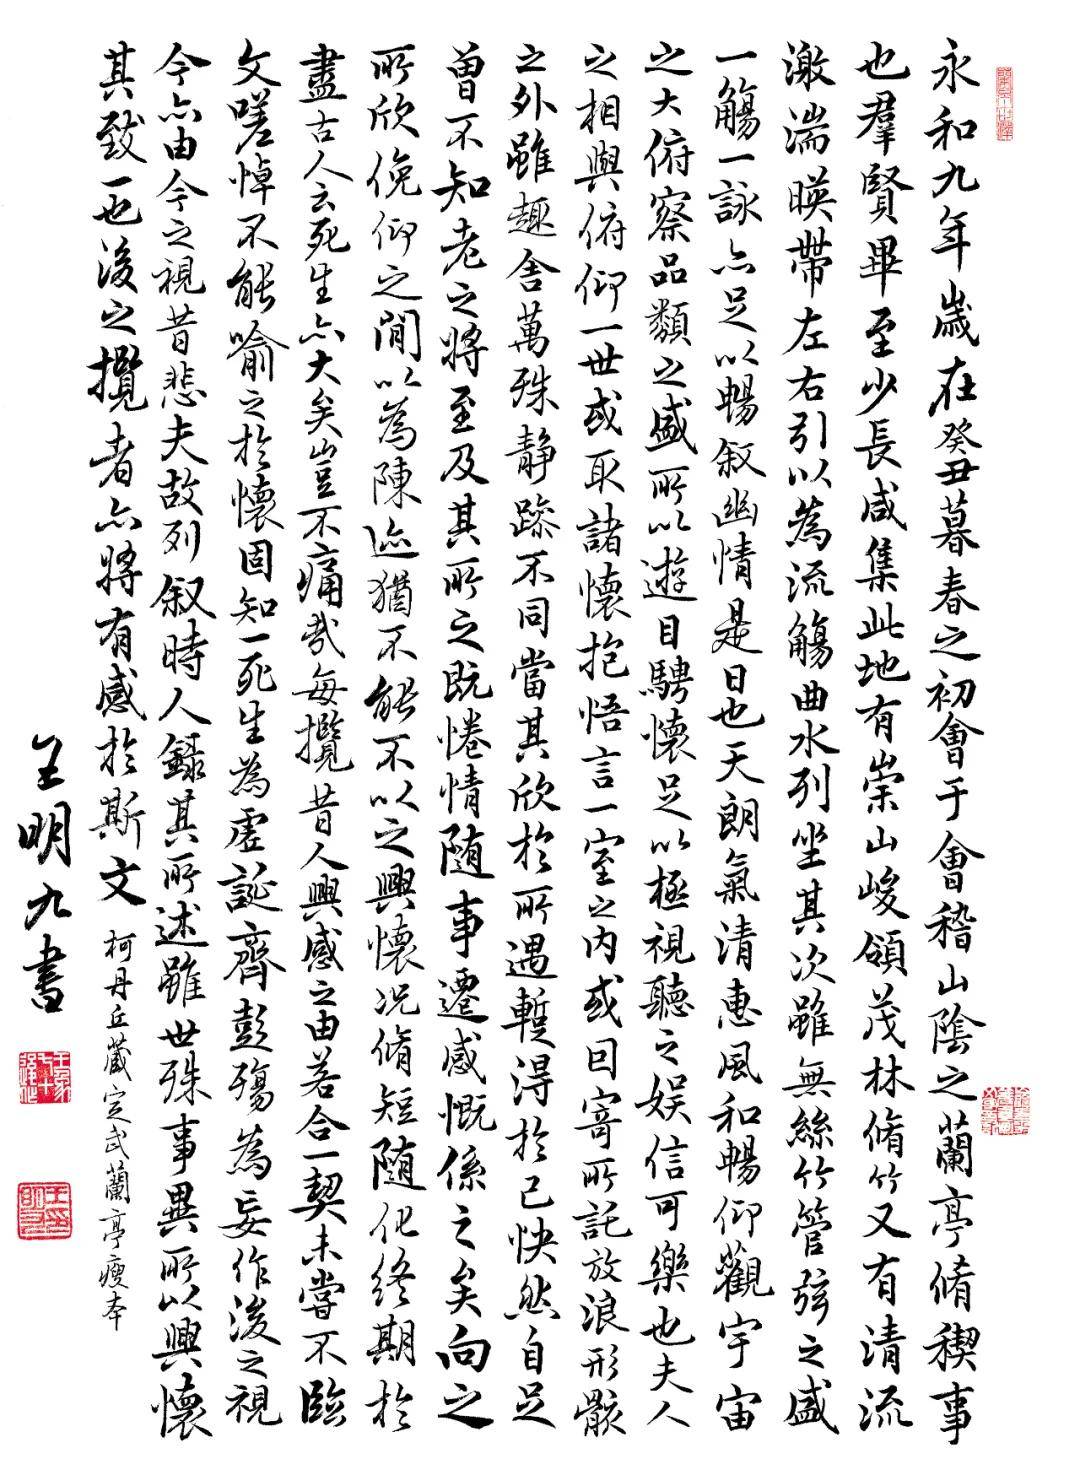 永和九年歲在癸丑暮春之初會于會稽山陰之蘭亭脩稧事
也羣賢畢至少長咸集此地有崇山峻領茂林脩竹又有清流
激湍暎帶左右引以為流觴曲水列坐其次雖無絲竹管弦之盛
一觴一詠亦足以暢叙幽情是日也天朗氣清惠風和暢仰觀宇宙
之大俯察品類之盛所以遊目騁懷足以極視聽之娛信可樂也夫人
之相與俯仰一世或取諸懷抱悟言一室之内或因寄所託放浪形骸
之外雖趣舍萬殊静躁不同當其欣於所遇蹔得於己快然自足
曾不知老之將至及其所之既惓情隨事遷感慨係之矣向之
所欣俛仰之閒以為陳迹猶不能不以之興懷况脩短隨化終期於
盡古人云死生亦大矣豈不痛哉每攬昔人興感之由若合一契未嘗不臨
文嗟悼不能喻之於懷固知一死生為虛誕齊彭殤為妄作後之視
今亦由今之視昔悲夫故列叙時人錄其所述雖世殊事異所以興懷
其致一也後之攬者亦將有感於斯文
柯丹丘藏定武蘭亭瘦本
王明九書